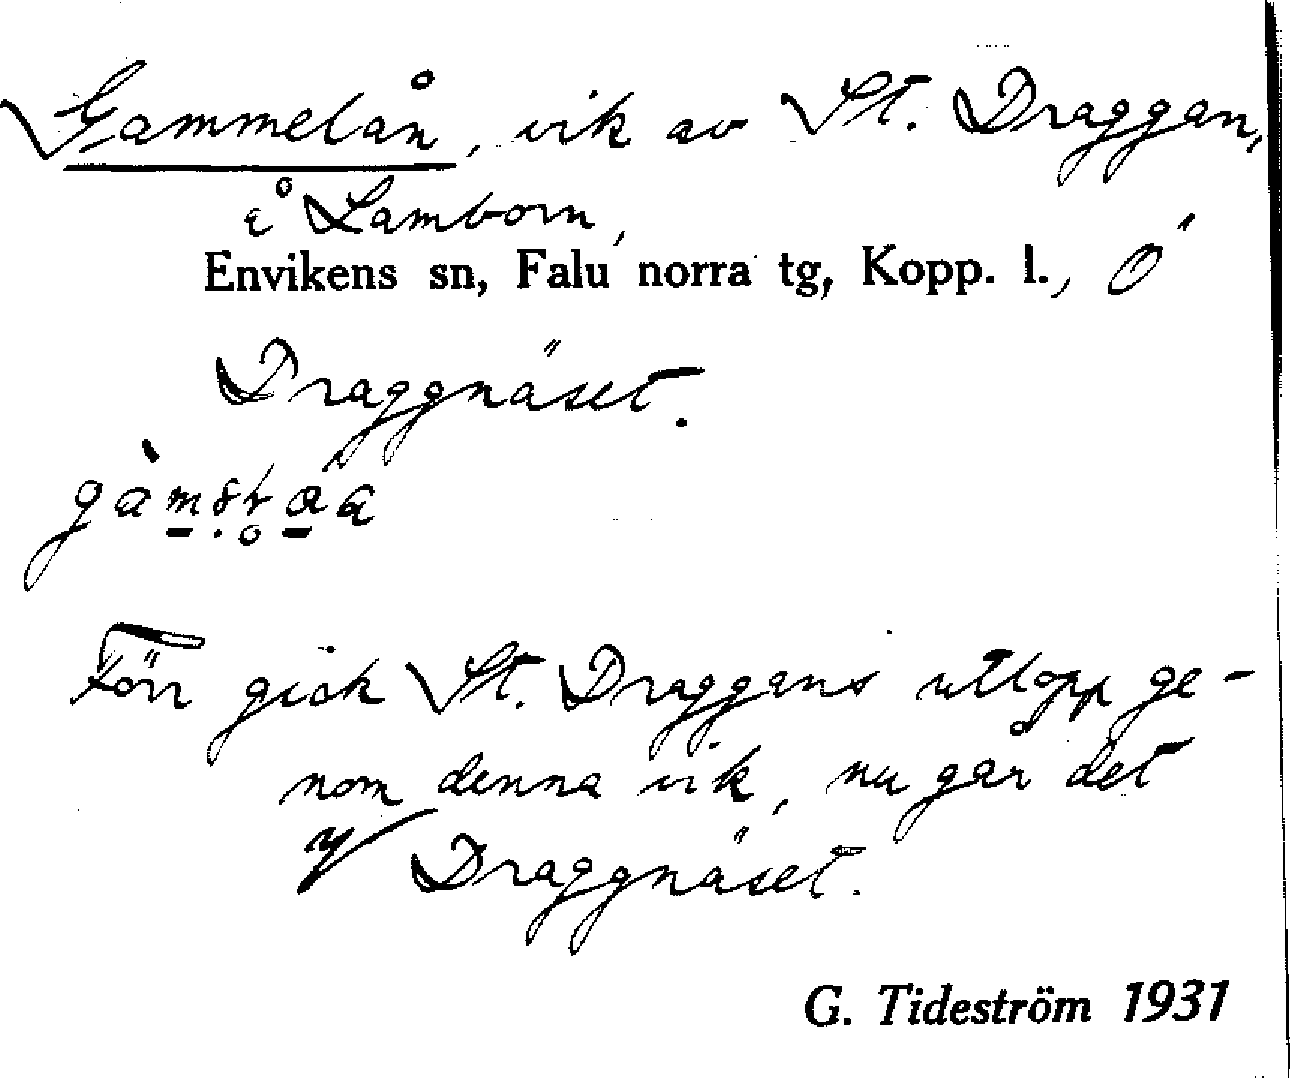 Gammelån, vik av St. Draggan,
å Lamborn,
Envikens sn, Falu norra tg, Kopp. l., Ö
Draggnäset.
Förr gick St. Draggans utlopp ge-
nom denna vik, nu går det
V Draggnäset.
G. Tideström 1931